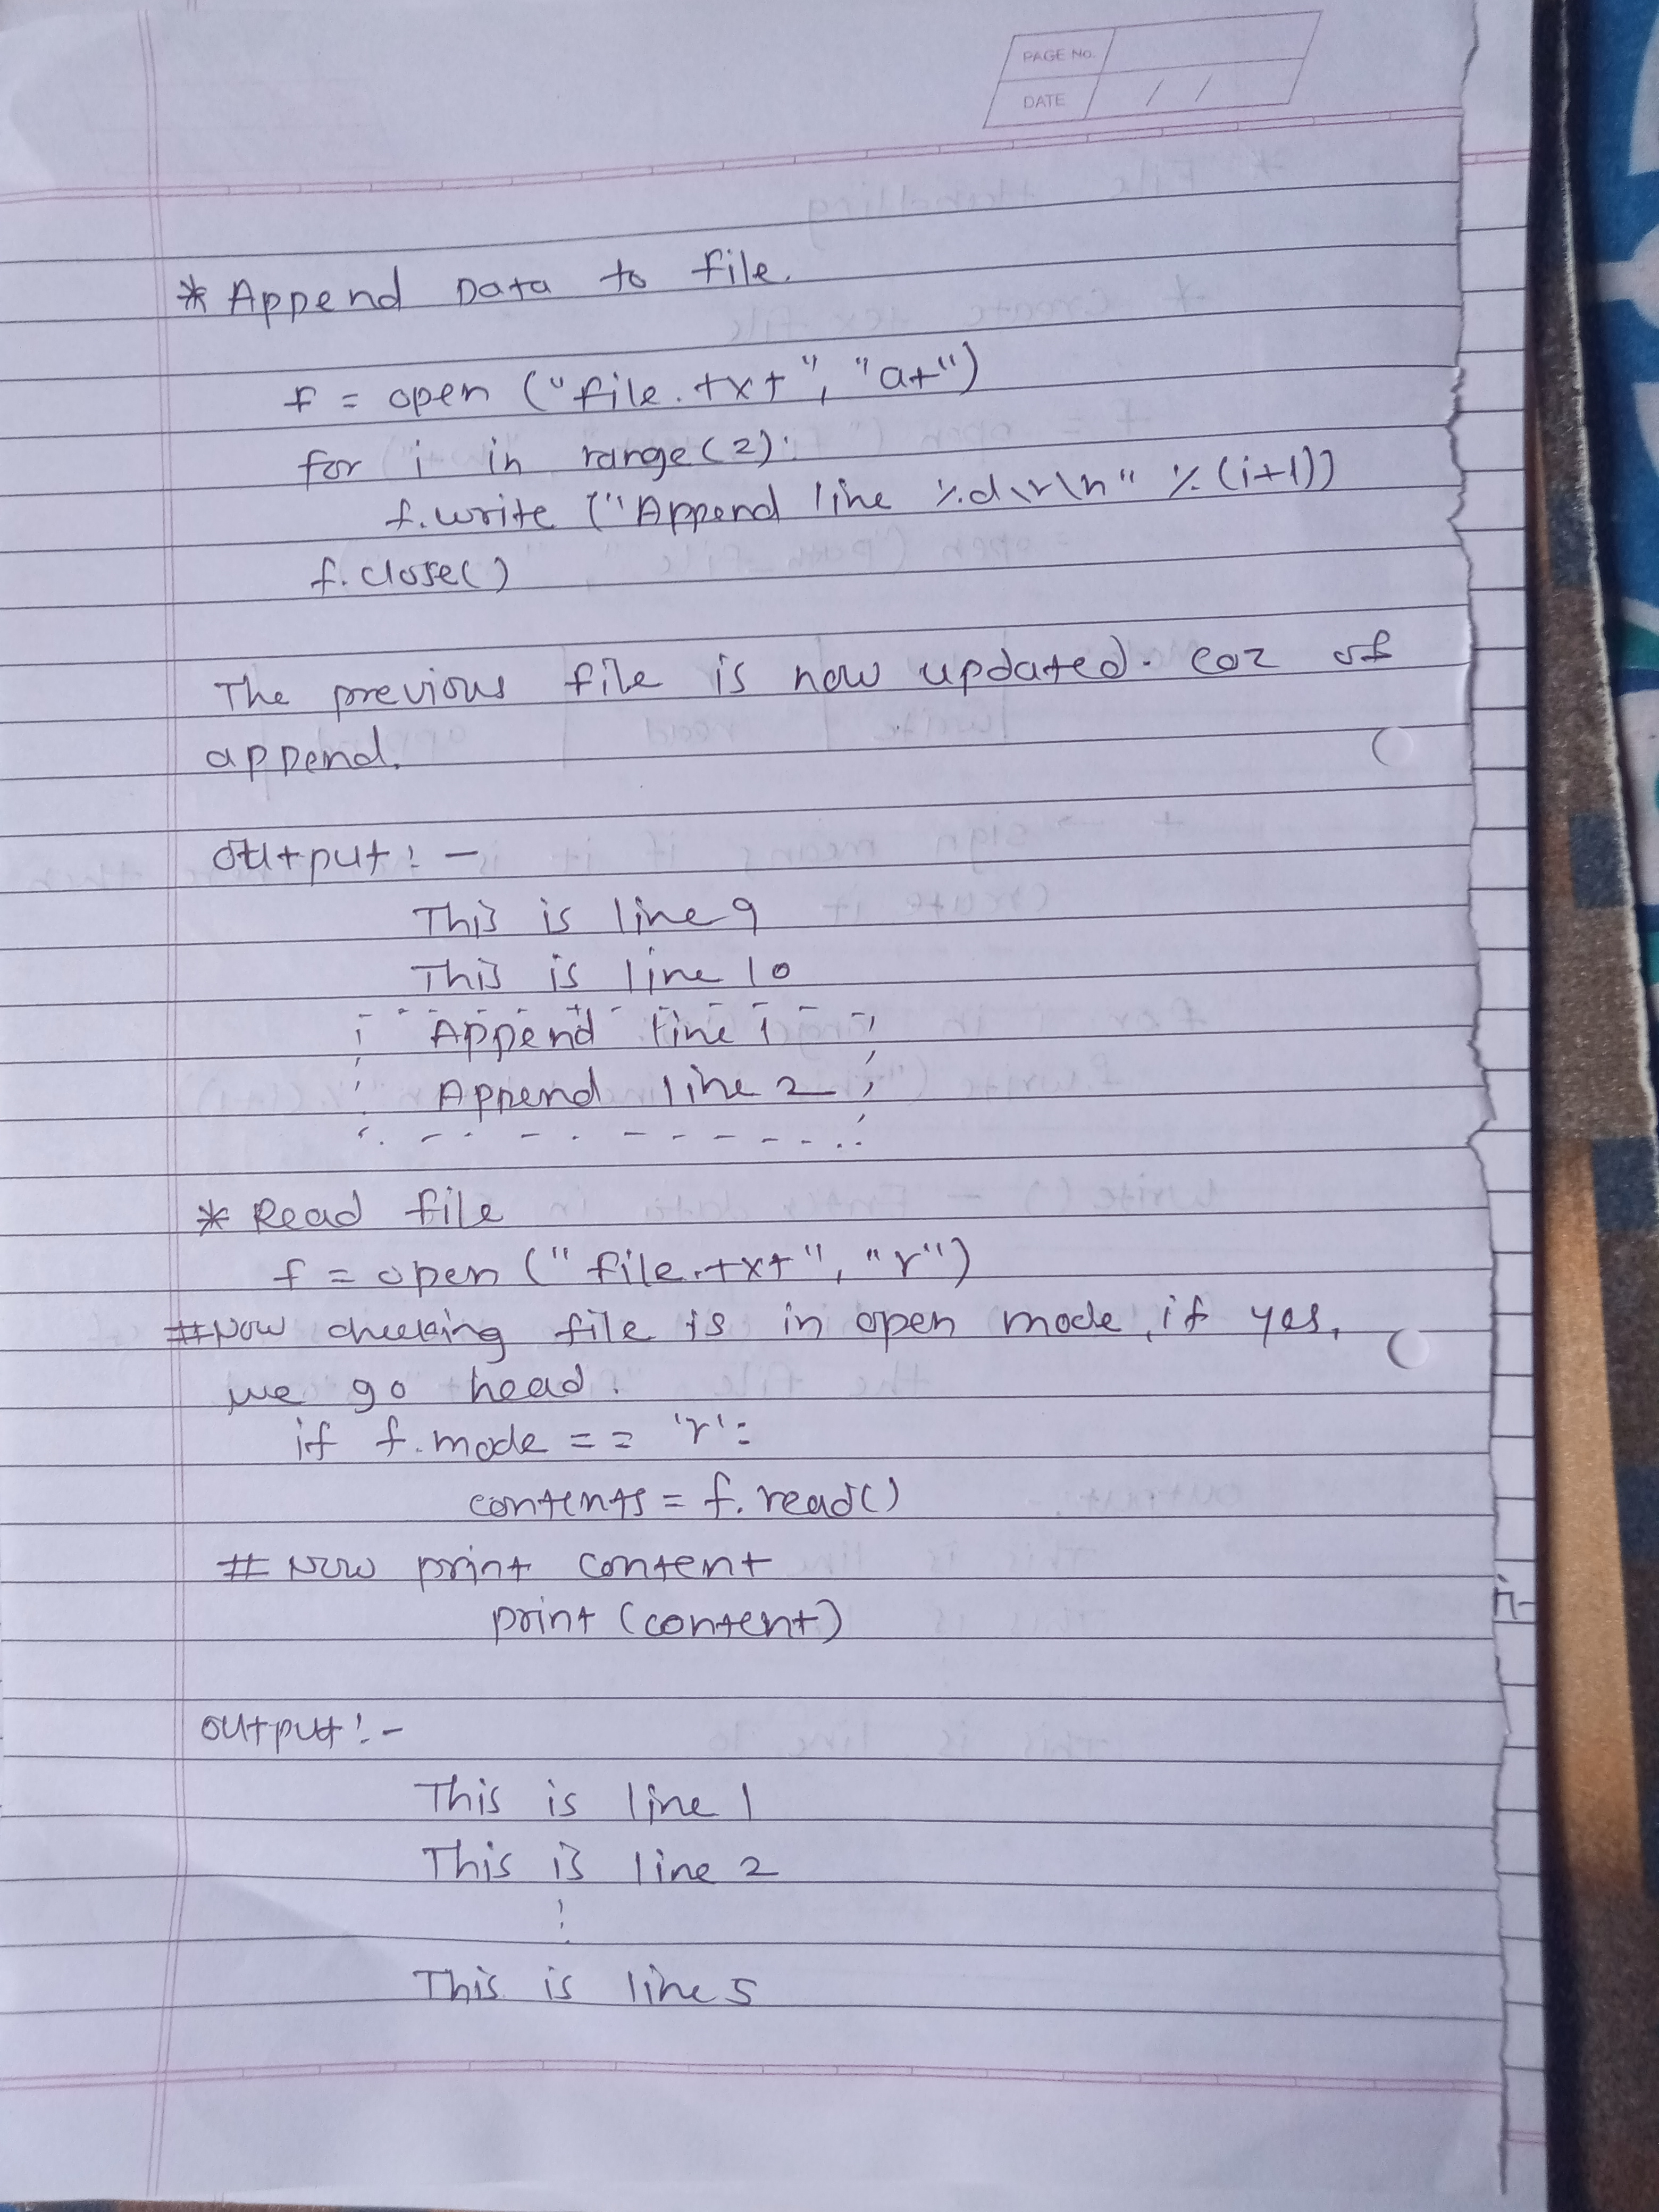 PAGE No.
DATE / /
* Append Data to file.
f = open ("file.txt", "a+")
for i in range(2):
f.write ("Append line %d\r\n" % (i+1))
f.close()
The previous file is now updated. coz of
append.
output: -
This is line 9
This is line 10
Append line 1
Append line 2
* Read file
f = open ("file.txt", "r")
#Now checking file is in open mode, if yes,
we go head.
if f.mode == 'r':
contents = f.read()
# Now print content
print (content)
output: -
This is line 1
This is line 2
This is line 5